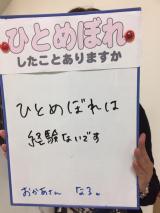 ひとめぼれ
したことありますか
ひとめぼれは
経験ないです
おかあさん なる。